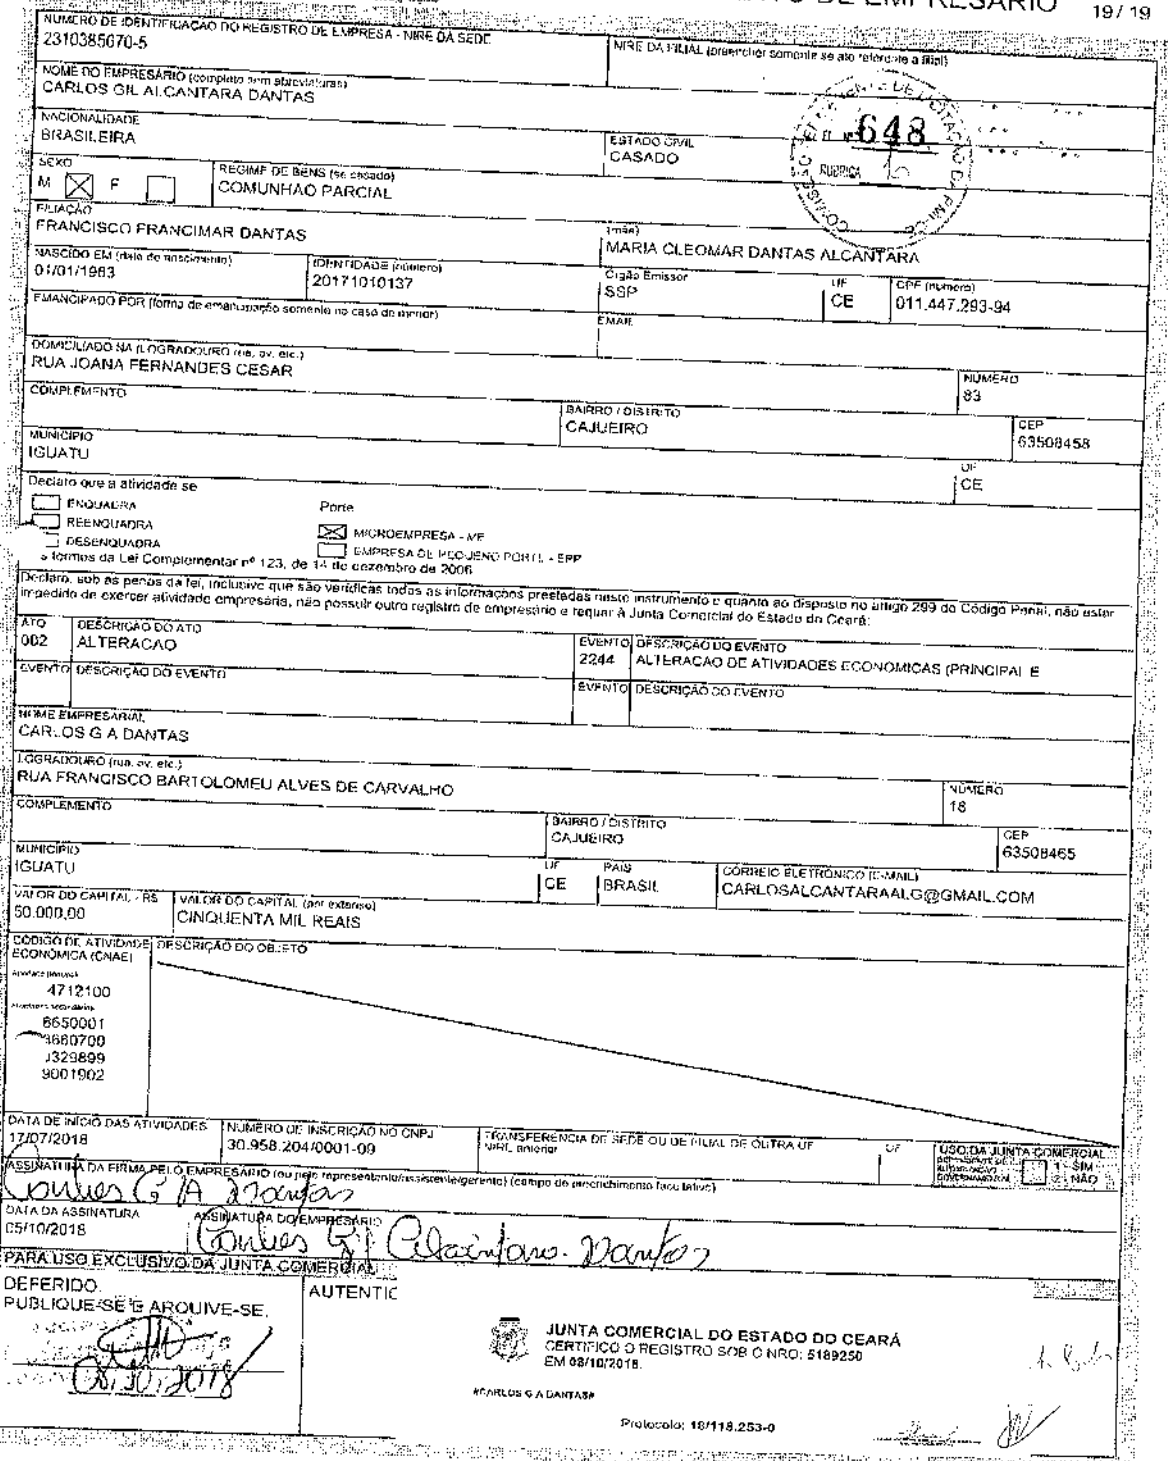 DE EMPRESÁRIO 19/19
NÚMERO DE IDENTIFICAÇÃO DO REGISTRO DE EMPRESA - NIRE DA SEDE
2310385670-5
NIRE DA FILIAL (preencher somente se ato referente a filial)
NOME DO EMPRESÁRIO (completo sem abreviaturas)
CARLOS GIL ALCANTARA DANTAS
648
RUBRICA
NACIONALIDADE
BRASILEIRA
ESTADO CIVIL
CASADO
SEXO
M F
REGIME DE BENS (se casado)
COMUNHAO PARCIAL
FILIAÇÃO
FRANCISCO FRANCIMAR DANTAS
(mãe)
MARIA CLEOMAR DANTAS ALCANTARA
NASCIDO EM (data de nascimento)
01/01/1983
IDENTIDADE (número)
20171010137
Órgão Emissor
SSP
UF
CE
CPF (número)
011.447.293-94
EMANCIPADO POR (forma de emancipação somente no caso de menor)
EMAIL
DOMICILIADO NA (LOGRADOURO rua, av, etc.)
RUA JOANA FERNANDES CESAR
NÚMERO
83
COMPLEMENTO
BAIRRO / DISTRITO
CAJUEIRO
CEP
63508458
MUNICÍPIO
IGUATU
UF
CE
Declaro que a atividade se
ENQUADRA
REENQUADRA
DESENQUADRA
Porte
MICROEMPRESA - ME
EMPRESA DE PEQUENO PORTE - EPP
s termos da Lei Complementar nº 123, de 14 de dezembro de 2006
Declaro, sob as penas da lei, inclusive que são verídicas todas as informações prestadas neste instrumento e quanto ao disposto no artigo 299 do Código Penal, não estar
impedido de exercer atividade empresária, não possuir outro registro de empresário e requer à Junta Comercial do Estado do Ceará:
ATO
002
DESCRIÇÃO DO ATO
ALTERACAO
EVENTO
2244
DESCRIÇÃO DO EVENTO
ALTERACAO DE ATIVIDADES ECONOMICAS (PRINCIPAL E
EVENTO DESCRIÇÃO DO EVENTO
EVENTO DESCRIÇÃO DO EVENTO
NOME EMPRESARIAL
CARLOS G A DANTAS
LOGRADOURO (rua, av, etc.)
RUA FRANCISCO BARTOLOMEU ALVES DE CARVALHO
NÚMERO
18
COMPLEMENTO
BAIRRO / DISTRITO
CAJUEIRO
CEP
63508465
MUNICÍPIO
IGUATU
UF
CE
PAIS
BRASIL
CORREIO ELETRÔNICO (E-MAIL)
CARLOSALCANTARAALG@GMAIL.COM
VALOR DO CAPITAL - R$
50.000,00
VALOR DO CAPITAL (por extenso)
CINQUENTA MIL REAIS
CÓDIGO DE ATIVIDADE
ECONÔMICA (CNAE)
DESCRIÇÃO DO OBJETO
4712100
8650001
660700
329899
9001902
DATA DE INÍCIO DAS ATIVIDADES
17/07/2018
NÚMERO DE INSCRIÇÃO NO CNPJ
30.958.204/0001-09
TRANSFERÊNCIA DE SEDE OU DE FILIAL DE OUTRA UF
NIRE anterior
UF
USO DA JUNTA COMERCIAL
1 - SIM
2 - NÃO
ASSINATURA DA FIRMA PELO EMPRESÁRIO (ou pelo representante/assistente/gerente) (campo de preenchimento facultativo)
Carlos G A Dantas
DATA DA ASSINATURA
05/10/2018
ASSINATURA DO EMPRESÁRIO
Carlos Gil Alcântara Dantas
PARA USO EXCLUSIVO DA JUNTA COMERCIAL
DEFERIDO.
PUBLIQUE-SE E ARQUIVE-SE.
08/10/2018
AUTENTIC
JUNTA COMERCIAL DO ESTADO DO CEARÁ
CERTIFICO O REGISTRO SOB O NRO: 5189250
EM 08/10/2018.
#CARLOS G A DANTAS#
Protocolo: 18/118.253-0